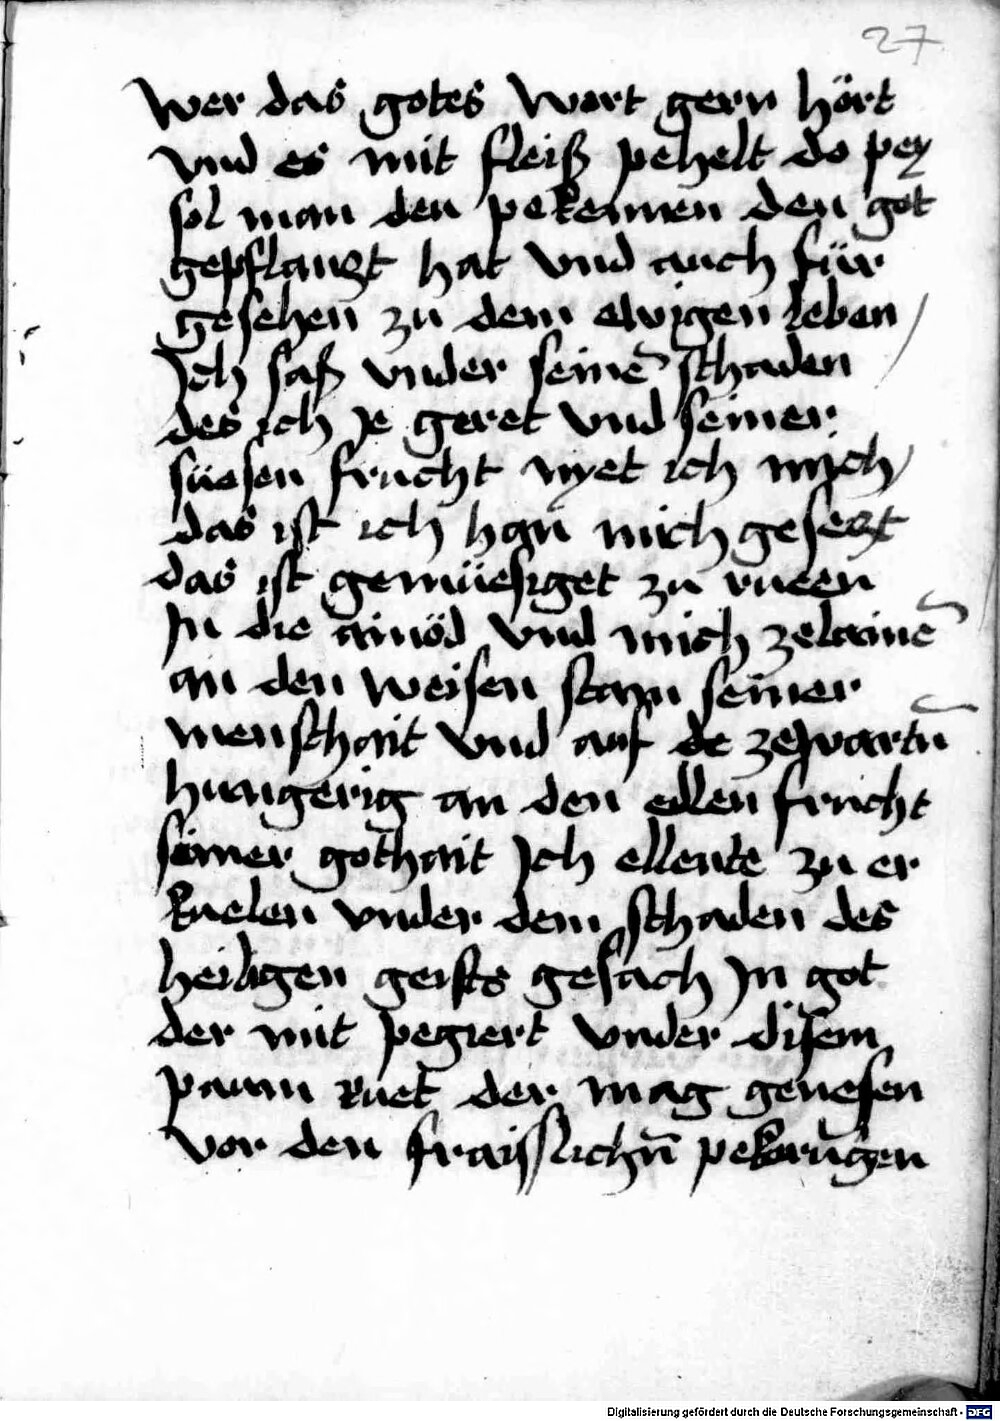 27
wer das gotes wort gern hört
vnd es mit fleiß pehelt do pey
sol man den pekennen den got
gepflanczt hat vnd auch für
gesehen zu dem ewigen leben /
Ich saß vnder seinē schaden
des ich Je geret vnd seiner
süesen frucht nyet ich mich /
das ist ich han mich geseczt
das ist gemüesiget zu rueen
In die ainöd vnd mich zelainē
an den weisen stam seiner
menschait vnd auf de zewartn̄
hungerig an den edlen frucht
seiner gothait Ich ellente zu er
kuelen vnder dem schaden des
heiligen geists gesach In got
der mit pegiert vnder disem
paum ruet der mag genesen
vor den fraisslichn̄ pekorūgen
Digitalisierung gefördert durch die Deutsche Forschungsgemeinschaft - DFG